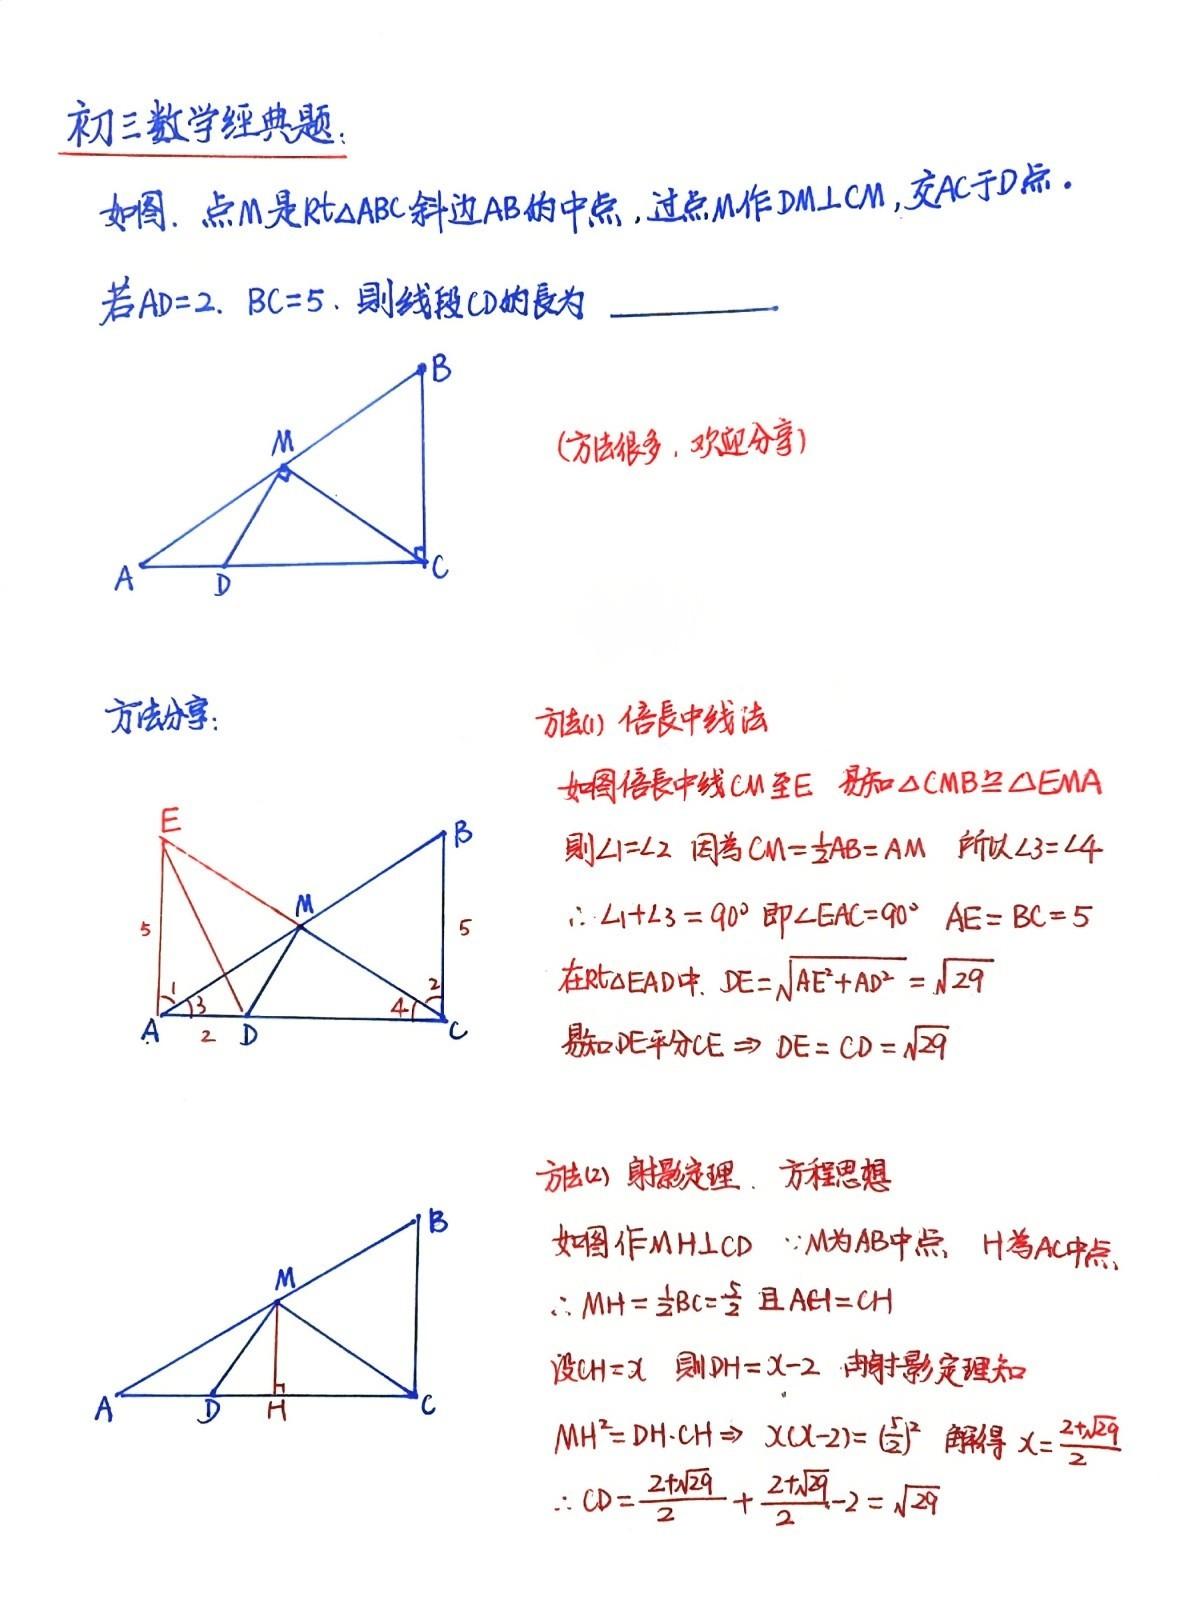 初三数学經典题:
如图. 点M是Rt△ABC斜边AB的中点,过点M作DM⊥CM,交AC于D点.
若AD=2. BC=5. 則线段CD的長为 ______
B
M
(方法很多. 欢迎分享)
A
D
C
方法分享:
方法(1) 倍長中线法
如图倍長中线CM至E 易知△CMB≌△EMA
則∠1=∠2 因為CM=½AB=AM 所以∠3=∠4
∴∠1+∠3=90° 即∠EAC=90° AE=BC=5
在Rt△EAD中. DE=√(AE²+AD²)=√29
易知DE平分CE ⇒ DE=CD=√29
E
B
M
5
5
1
2
3
4
A
2
D
C
方法(2) 射影定理. 方程思想
如图作MH⊥CD ∵M为AB中点, H為AC中点,
∴MH=½BC=5/2 且AH=CH
设CH=x 則DH=x-2 由射影定理知
MH²=DH·CH⇒ x(x-2)=(5/2)² 解得 x=(2+√29)/2
∴CD=(2+√29)/2+(2+√29)/2-2=√29
B
M
A
D
H
C